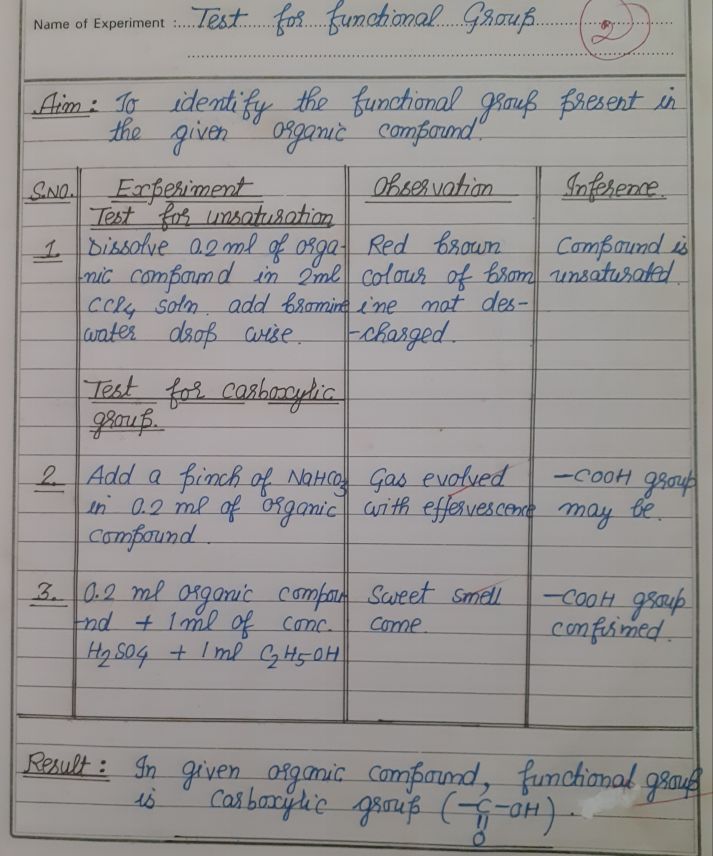 Name of Experiment :.... Test for functional Group
2
Aim : To identify the functional group present in
the given organic compound.
S.NO. Experiment Observation Inference.
Test for unsaturation
1. Dissolve 0.2 ml of orga- Red brown Compound is
-nic compound in 2ml colour of brom unsaturated.
CCl4 soln. add bromine ine not des-
water drop wise. -charged.
Test for carboxylic
group.
2. Add a pinch of NaHCO3 Gas evolved -COOH group
in 0.2 ml of organic with effervescence may be.
compound.
3. 0.2 ml organic compou Sweet smell -COOH group
-nd + 1 ml of conc. come. confirmed.
H2SO4 + 1 ml C2H5OH
Result : In given organic compound, functional group
is carboxylic group (-C-OH).
O